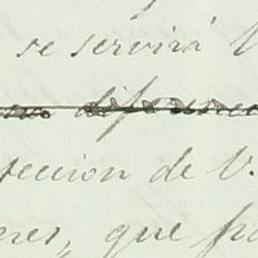 se servirá V
seccion de V.
nes, que pa